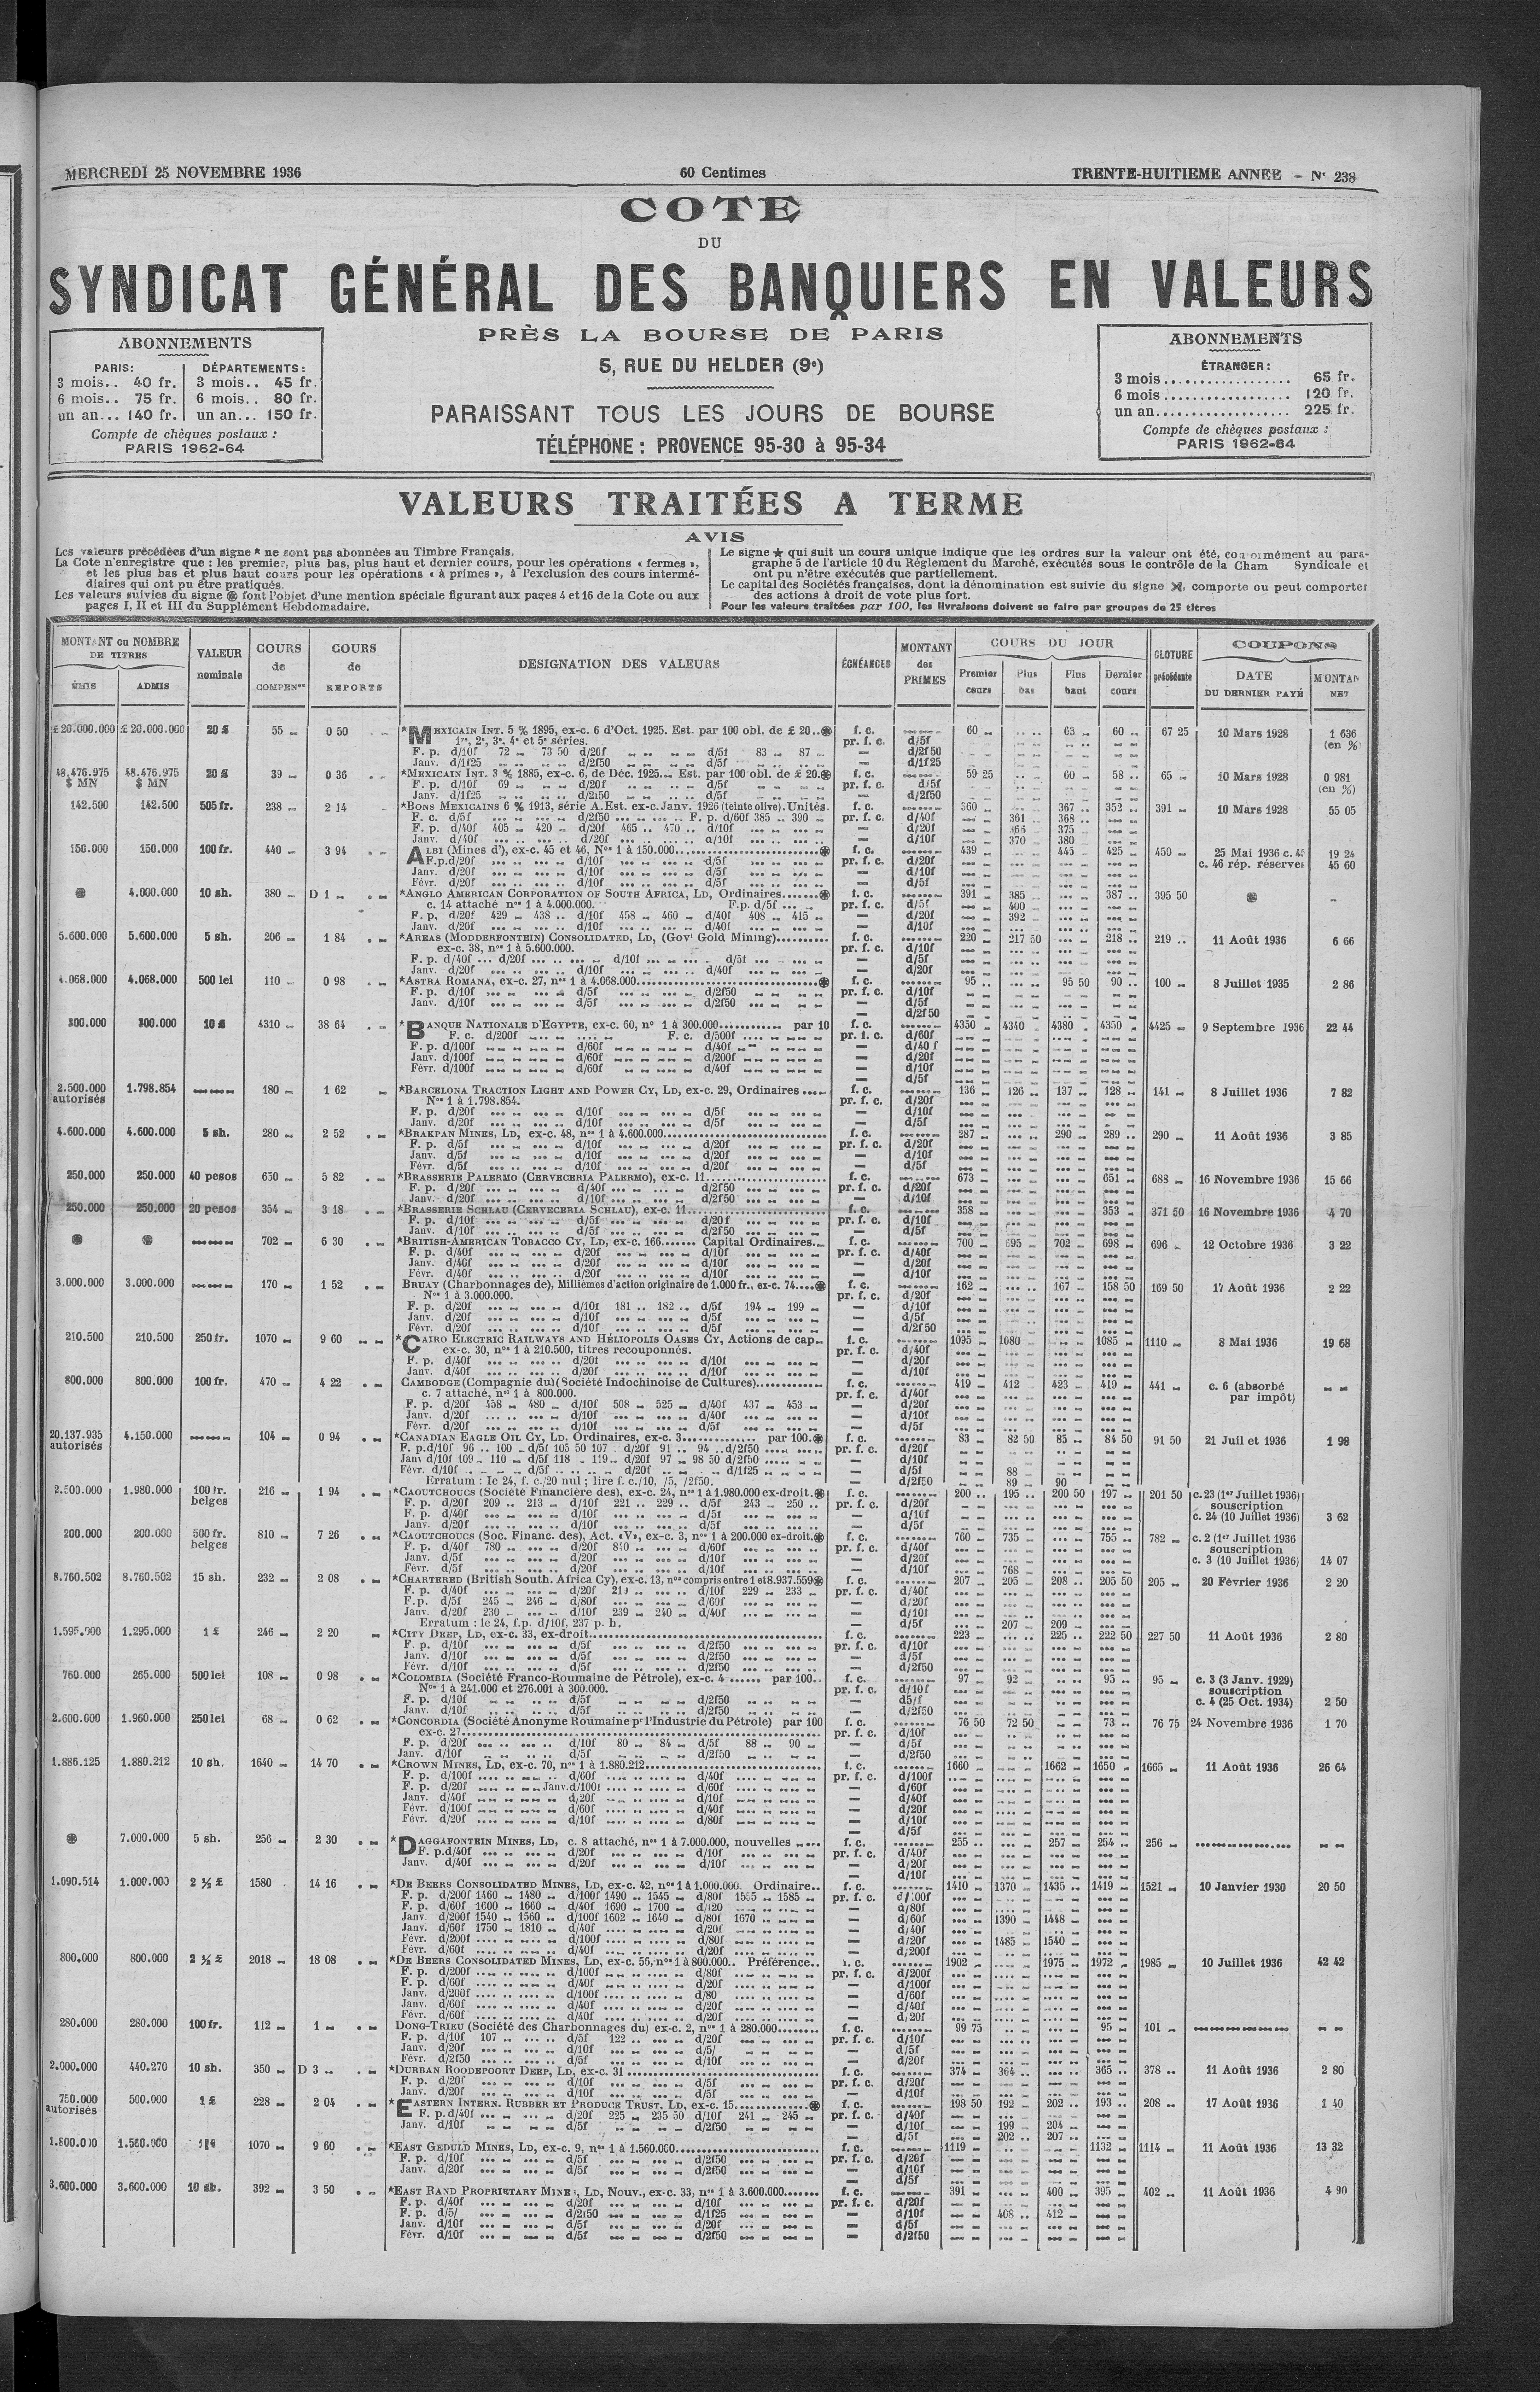 MERCREDI 25 NOVEMBRE 1936
60 Centimes
TRENTE-HUITIEME ANNEE - N° 238
COTE
DU
SYNDICAT GÉNÉRAL DES BANQUIERS EN VALEURS
PRÈS LA BOURSE DE PARIS
5, RUE DU HELDER (9e)
PARAISSANT TOUS LES JOURS DE BOURSE
TÉLÉPHONE : PROVENCE 95-30 à 95-34
ABONNEMENTS
PARIS: DÉPARTEMENTS:
3 mois.. 40 fr. 3 mois.. 45 fr.
6 mois.. 75 fr. 6 mois.. 80 fr.
un an... 140 fr. un an... 150 fr.
Compte de chèques postaux :
PARIS 1962-64
ABONNEMENTS
ÉTRANGER :
3 mois.................. 65 fr.
6 mois.................. 120 fr.
un an.................. 225 fr.
Compte de chèques postaux :
PARIS 1962-64
VALEURS TRAITÉES A TERME
AVIS
Les valeurs précédées d'un signe * ne sont pas abonnées au Timbre Français.
La Cote n'enregistre que : les premier, plus bas, plus haut et dernier cours, pour les opérations « fermes »,
et les plus bas et plus haut cours pour les opérations « à primes », à l'exclusion des cours intermé-
diaires qui ont pu être pratiqués.
Les valeurs suivies du signe ⊛ font l'objet d'une mention spéciale figurant aux pages 4 et 16 de la Cote ou aux
pages I, II et III du Supplément Hebdomadaire.
Le signe ★ qui suit un cours unique indique que les ordres sur la valeur ont été, conformément au para-
graphe 5 de l'article 10 du Règlement du Marché, exécutés sous le contrôle de la Cham Syndicale et
ont pu n'être exécutés que partiellement.
Le capital des Sociétés françaises, dont la dénomination est suivie du signe, comporte ou peut comporter
des actions à droit de vote plus fort.
Pour les valeurs traitées par 100, les livraisons doivent se faire par groupes de 25 titres
MONTANT ou NOMBRE DE TITRES ÉMIS ADMIS
VALEUR nominale
COURS de COMPENon
COURS de REPORTS
DESIGNATION DES VALEURS
ÉCHÉANCES
MONTANT des PRIMES
COURS DU JOUR Premier cours Plus bas Plus haut Dernier cours
CLOTURE précédente
COUPONS DATE DU DERNIER PAYÉ MONTAN NET
£ 20.000.000 £ 20.000.000 20 £ 55 0 50 *MEXICAIN INT. 5 % 1895, ex-c. 6 d'Oct. 1925. Est. par 100 obl. de £ 20..⊛ f. c. 60 63 60 67 25 10 Mars 1928 1 636 (en %)
1re, 2e, 3e, 4e et 5e séries. pr. f. c. d/5f
F. p. d/10f 72 73 50 d/20f d/5f 83 87 d/2f50
Janv. d/1f25 d/2f50 d/5f d/1f25
48.476.975 $ MN 48.476.975 $ MN 20 £ 39 0 36 *MEXICAIN INT. 3 % 1885, ex-c. 6, de Déc. 1925... Est. par 100 obl. de £ 20.⊛ f. c. 59 25 60 58 65 10 Mars 1928 0 981 (en %)
F. p. d/10f 69 d/20f d/5f pr. f. c. d/5f
Janv. d/1f25 d/2f50 d/5f d/2f50
142.500 142.500 505 fr. 238 2 14 *BONS MEXICAINS 6 % 1913, série A. Est. ex-c. Janv. 1926 (teinte olive). Unités f. c. 360 367 352 391 10 Mars 1928 55 05
F. c. d/5f d/2f50 F. p. d/60f 385 390 pr. f. c. d/40f 361 368
F. p. d/40f 405 420 d/20f 465 470 d/10f d/20f 375
Janv. d/40f d/20f d/10f d/10f 370 380
150.000 150.000 100 fr. 440 3 94 ALBI (Mines d'), ex-c. 45 et 46, Nos 1 à 150.000 ⊛ f. c. 439 445 425 450 25 Mai 1936 c. 45 19 24
F.p.d/20f d/10f d/5f pr. f. c. d/20f c. 46 rép. réservée 45 60
Janv. d/20f d/10f d/5f d/10f
Févr. d/20f d/10f d/5f d/5f
⊛ 4.000.000 10 sh. 380 D 1 *ANGLO AMERICAN CORPORATION OF SOUTH AFRICA, LD, Ordinaires.......⊛ f. c. 391 385 387 395 50 ⊛
c. 14 attaché nos 1 à 4.000.000. F.p. d/5f pr. f. c. d/5f 400
F. p. d/20f 429 438 d/10f 458 460 d/40f 408 415 d/20f 392
Janv. d/20f d/10f d/40f d/10f
5.600.000 5.600.000 5 sh. 206 1 84 *AREAS (MODDERFONTEIN) CONSOLIDATED, LD, (Govt Gold Mining) f. c. 220 217 50 218 219 11 Août 1936 6 66
ex-c. 38, nos 1 à 5.600.000. pr. f. c. d/10f
F. p. d/40f d/20f d/10f d/5f d/5f
Janv. d/20f d/10f d/40f d/20f
4.068.000 4.068.000 500 lei 110 0 98 *ASTRA ROMANA, ex-c. 27, nos 1 à 4.068.000 ⊛ f. c. 95 95 50 90 100 8 Juillet 1935 2 86
F. p. d/10f d/5f d/2f50 pr. f. c. d/10f
Janv. d/10f d/5f d/2f50 d/5f
d/2f50
300.000 300.000 10 £ 4310 38 64 *BANQUE NATIONALE D'EGYPTE, ex-c. 60, nos 1 à 300.000 par 10 f. c. 4350 4340 4380 4350 4425 9 Septembre 1936 22 44
F. c. d/200f F. c. d/500f pr. f. c. d/60f
F. p. d/100f d/60f d/40f d/40 f
Janv. d/100f d/60f d/200f d/20f
Févr. d/100f d/60f d/40f d/10f
d/5f
2.500.000 autorisés 1.798.854 180 1 62 *BARCELONA TRACTION LIGHT AND POWER CY, LD, ex-c. 29, Ordinaires f. c. 136 126 137 128 141 8 Juillet 1936 7 82
Nos 1 à 1.798.854. pr. f. c. d/20f
F. p. d/20f d/10f d/5f d/10f
Janv. d/20f d/10f d/5f d/5f
4.600.000 4.600.000 5 sh. 280 2 52 *BRAKPAN MINES, LD, ex-c. 48, nos 1 à 4.600.000 f. c. 287 290 289 290 11 Août 1936 3 85
F. p. d/5f d/10f d/20f pr. f. c. d/20f
Janv. d/5f d/10f d/20f d/10f
Févr. d/5f d/10f d/20f d/5f
250.000 250.000 40 pesos 650 5 82 *BRASSERIE PALERMO (CERVECERIA PALERMO), ex-c. 11 f. c. 673 651 683 16 Novembre 1936 15 66
F. p. d/20f d/40f d/2f50 pr. f. c. d/20f
Janv. d/20f d/10f d/2f50 d/10f
250.000 250.000 20 pesos 354 3 18 *BRASSERIE SCHLAU (CERVECERIA SCHLAU), ex-c. 11 f. c. 358 353 371 50 16 Novembre 1936 4 70
F. p. d/10f d/5f d/20f pr. f. c. d/10f
Janv. d/10f d/5f d/2f50 d/5f
⊛ ⊛ 702 6 30 *BRITISH-AMERICAN TOBACCO CY, LD, ex-c. 166....... Capital Ordinaires f. c. 700 695 702 698 696 12 Octobre 1936 3 22
F. p. d/40f d/20f d/10f pr. f. c. d/40f
Janv. d/40f d/20f d/10f d/20f
Févr. d/40f d/20f d/10f d/10f
3.000.000 3.000.000 170 1 52 BRUAY (Charbonnages de), Millièmes d'action originaire de 1.000 fr., ex-c. 74....⊛ f. c. 162 167 158 50 169 50 17 Août 1936 2 22
Nos 1 à 3.000.000. pr. f. c. d/20f
F. p. d/20f d/10f 181 182 d/5f 194 199 d/10f
Janv. d/20f d/10f d/5f d/5f
Févr. d/20f d/10f d/5f d/2f50
210.500 210.500 250 fr. 1070 9 60 *CAIRO ELECTRIC RAILWAYS AND HÉLIOPOLIS OASES CY, Actions de cap. f. c. 1095 1080 1085 1110 8 Mai 1936 19 68
ex-c. 30, nos 1 à 210.500, titres recouponnés. pr. f. c. d/40f
F. p. d/40f d/20f d/10f d/20f
Janv. d/40f d/20f d/10f d/10f
800.000 800.000 100 fr. 470 4 22 CAMBODGE (Compagnie du) (Société Indochinoise de Cultures) f. c. 419 412 423 419 441 c. 6 (absorbé par impôt)
c. 7 attaché, nos 1 à 800.000. pr. f. c. d/40f
F. p. d/20f 458 480 d/10f 508 525 d/40f 437 453 d/20f
Janv. d/20f d/10f d/40f d/10f
Févr. d/20f d/10f d/5f d/5f
20.137.935 autorisés 4.150.000 104 0 94 *CANADIAN EAGLE OIL CY, LD. Ordinaires, ex-c. 3 par 100.⊛ f. c. 83 82 50 85 84 50 91 50 21 Juil et 1936 1 98
F. p.d/10f 96 100 d/5f 105 50 107 d/20f 91 94 d/2f50 pr. f. c. d/20f
Janv d/10f 109 110 d/5f 118 119 d/20f 97 98 50 d/2f50 d/10f
Févr. d/10f d/5f d/20f d/1f25 d/5f 88
Erratum : le 24, f. c./20 nul ; lire f. c./10, /5, /2f50. d/2f50 89 90
2.500.000 1.980.000 100 fr. belges 216 1 94 *CAOUTCHOUCS (Société Financière des), ex-c. 24, nos 1 à 1.980.000 ex-droit.⊛ f. c. 200 195 200 50 197 201 50 c. 23 (1er Juillet 1936) souscription
F. p. d/20f 209 213 d/10f 221 229 d/5f 243 250 pr. f. c. d/20f
F. p. d/40f d/10f d/5f d/10f c. 24 (10 Juillet 1936) 3 62
Janv. d/20f d/10f d/5f d/5f
200.000 200.000 500 fr. belges 810 7 26 *CAOUTCHOUCS (Soc. Financ. des), Act. «V», ex-c. 3, nos 1 à 200.000 ex-droit.⊛ f. c. 760 735 755 782 c. 2 (1er Juillet 1936 souscription
F. p. d/40f 780 d/20f 840 d/60f pr. f. c. d/40f
Janv. d/5f d/20f d/10f d/20f c. 3 (10 Juillet 1936) 14 07
Févr. d/5f d/20f d/10f d/10f 768
8.760.502 8.760.502 15 sh. 232 2 08 *CHARTERED (British South. Africa Cy), ex-c. 13, nos compris entre 1 et 8.937.559⊛ f. c. 207 205 208 205 50 205 20 Février 1936 2 20
F. p. d/40f d/20f d/10f 229 233 pr. f. c. d/40f
F.p. d/5f 245 246 d/80f d/60f d/20f
Janv. d/20f 230 d/10f 239 240 d/40f d/10f
Erratum : le 24, f.p. d/10f, 237 p. h. d/5f 207 209
1.595.000 1.295.000 1 £ 246 2 20 *CITY DEEP, LD, ex-c. 33, ex-droit f. c. 223 225 222 50 227 50 11 Août 1936 2 80
F. p. d/10f d/5f d/2f50 pr. f. c. d/10f
Janv. d/10f d/5f d/2f50 d/5f
Févr. d/10f d/5f d/2f50 d/2f50
760.000 265.000 500 lei 108 0 98 *COLOMBIA (Société Franco-Roumaine de Pétrole), ex-c. 4 par 100 f. c. 97 92 95 95 c. 3 (3 Janv. 1929) souscription
Nos 1 à 241.000 et 276.001 à 300.000. pr. f. c. d/10f
F. p. d/10f d/5f d/2f50 d5/f c. 4 (25 Oct. 1934) 2 50
Janv. d/10f d/5f d/2f50 d/2f50
2.600.000 1.960.000 250 lei 68 0 62 *CONCORDIA (Société Anonyme Roumaine pr l'Industrie du Pétrole) par 100 f. c. 76 50 72 50 73 76 75 24 Novembre 1936 1 70
ex-c. 27 pr. f. c. d/10f
F. p. d/20f d/10f 80 84 d/5f 88 90 d/5f
Janv. d/10f d/5f d/2f50 d/2f50
1.886.125 1.880.212 10 sh. 1640 14 70 *CROWN MINES, LD, ex-c. 70, nos 1 à 1.880.212 f. c. 1660 1662 1650 1665 11 Août 1936 26 64
F. p. d/100f d/60f d/40f pr. f. c. d/100f
F. p. d/20f Janv.d/100f d/60f d/60f
Janv. d/40f d/20f d/10f d/40f
Févr. d/100f d/60f d/40f d/20f
Févr. d/20f d/10f d/80f d/10f
d/5f
⊛ 7.000.000 5 sh. 256 2 30 *DAGGAFONTEIN MINES, LD, c. 8 attaché, nos 1 à 7.000.000, nouvelles f. c. 255 257 254 256
F. p.d/40f d/20f d/10f pr. f. c. d/40f
Janv. d/40f d/20f d/10f d/20f
d/10f
1.090.514 1.000.000 2 ½ £ 1580 14 16 *DE BEERS CONSOLIDATED MINES, LD, ex-c. 42, nos 1 à 1.000.000. Ordinaire f. c. 1410 1370 1435 1419 1521 10 Janvier 1930 20 50
F. p. d/200f 1460 1480 d/100f 1490 1545 d/80f 1585 pr. f. c. d/100f
F. p. d/60f 1600 1660 d/40f 1690 1700 d/120 d/80f
Janv. d/200f 1540 1560 d/100f 1602 1640 d/80f 1670 d/60f 1390 1448
Janv. d/60f 1750 1810 d/40f d/20f d/40f
Févr. d/200f d/100f d/80f d/20f 1485 1540
Févr. d/60f d/40f d/20f d/200f
800.000 800.000 2 ½ £ 2018 18 08 *DE BEERS CONSOLIDATED MINES, LD, ex-c. 56, nos 1 à 800.000.. Préférence f. c. 1902 1975 1972 1985 10 Juillet 1936 42 42
F. p. d/200f d/100f d/80f pr. f. c. d/200f
F. p. d/60f d/40f d/20f d/100f
Janv. d/200f d/100f d/80 d/60f
Janv. d/60f d/40f d/20f d/40f
Févr. d/60f d/40f d/20f d/20f
280.000 280.000 100 fr. 112 1 DONG-TRIEU (Société des Charbonnages du) ex-c. 2, nos 1 à 280.000 f. c. 99 75 95 101
F. p. d/10f 107 d/5f 122 d/20f pr. f. c. d/10f
Janv. d/20f d/10f d/5/ d/5f
Févr. d/2f50 d/5f d/10f d/20f
2.000.000 440.270 10 sh. 350 D 3 *DURBAN ROODEPOORT DEEP, LD, ex-c. 31 f. c. 374 364 365 378 11 Août 1936 2 80
F. p. d/20f d/10f d/5f pr. f. c. d/20f
Janv. d/20f d/10f d/5f d/10f
750.000 autorisés 500.000 1 £ 228 2 04 *EASTERN INTERN. RUBBER ET PRODUCE TRUST, LD, ex-c. 15 ⊛ f. c. 198 50 192 202 193 208 17 Août 1936 1 40
F. p.d/40f d/20f 225 235 50 d/10f 241 245 pr. f. c. d/40f
Janv. d/10f d/5f d/2f50 d/10f 199 204
d/5f 202 207
1.800.000 1.560.000 1070 9 60 *EAST GEDULD MINES, LD, ex-c. 9, nos 1 à 1.560.000 f. c. 1119 1132 1114 11 Août 1936 13 32
F. p. d/10f d/5f d/2f50 pr. f. c. d/20f
Janv. d/20f d/5f d/2f50 d/10f
d/5f
3.600.000 3.600.000 10 sh. 392 3 50 *EAST RAND PROPRIETARY MINES, LD, Nouv., ex-c. 33, nos 1 à 3.600.000 f. c. 391 400 395 402 11 Août 1936 4 90
F. p. d/40f d/20f d/10f pr. f. c. d/20f
F. p. d/5/ d/2f50 d/1f25 d/10f 408 412
Janv. d/10f d/5f d/20f d/5f
Févr. d/10f d/5f d/2f50 d/2f50